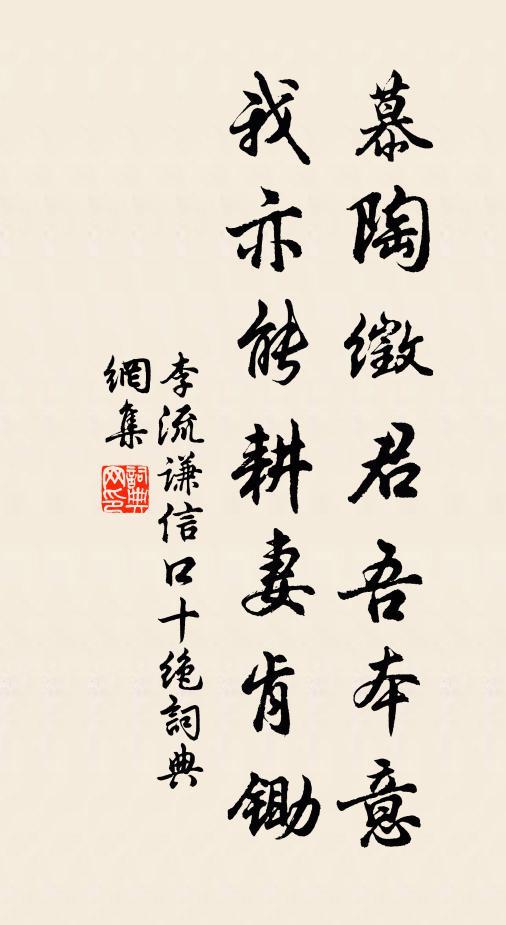 慕陶徵君吾本意
我亦能耕妻肯鋤
李流谦信口十绝詞典
網集
詞典网印